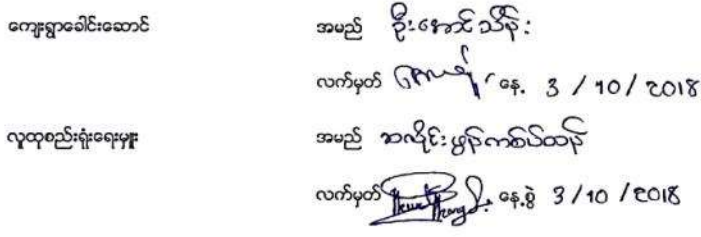 ကျေးရွာခေါင်းဆောင် အမည် ဦးအောင်သိန်း
လက်မှတ် နေ့. 3 / 10 / 2018
လူထုစည်းရုံးရေးမှူး အမည် ဆလိုင်းဗွန်ကစ်ပ်ထန်
လက်မှတ် နေ့စွဲ 3 / 10 / 2018